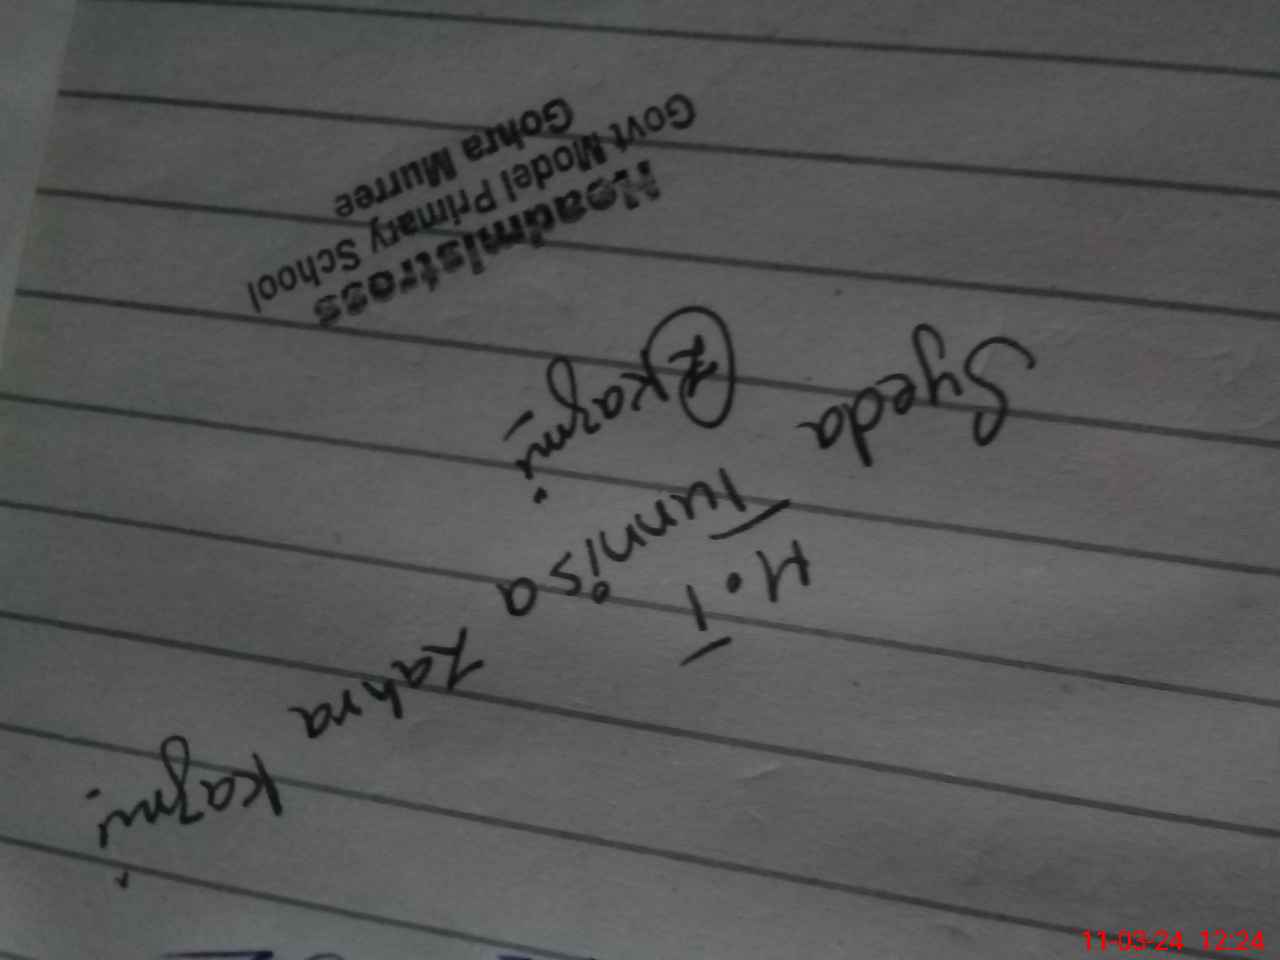 H.T
Syeda Tunnisa Zahra Kazmi
Zkazmi
Headmistress
Govt Model Primary School
Gohra Murree
11-03-24 12:24